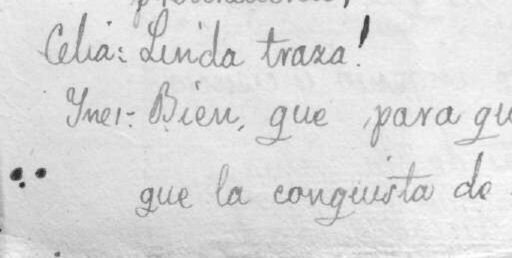 Celia: Linda traza!
Ines:- Bien, que para
que la conquista de